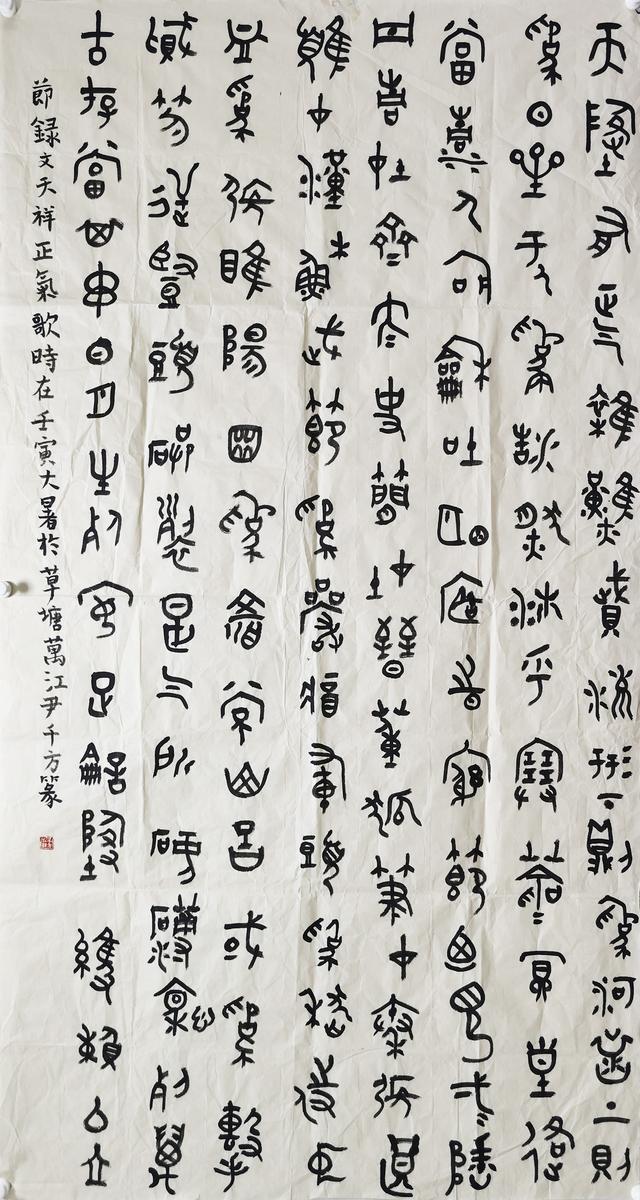 天地有正氣雜然賦流形下則為河嶽上則
為日星于人為浩然沛乎塞蒼冥皇路
當清夷含和吐明庭時窮節乃見一一垂
丹青在齊太史簡在晉董狐筆在秦張良
椎在漢蘇武節為嚴將軍頭為嵇侍中
血為張睢陽齒為顏常山舌或為擊
賊笏逆豎頭破裂是氣所磅礴凜烈萬
古存當其貫日月生死安足論地維賴以立
節錄文天祥正氣歌時在壬寅大暑於草塘萬江尹千方篆